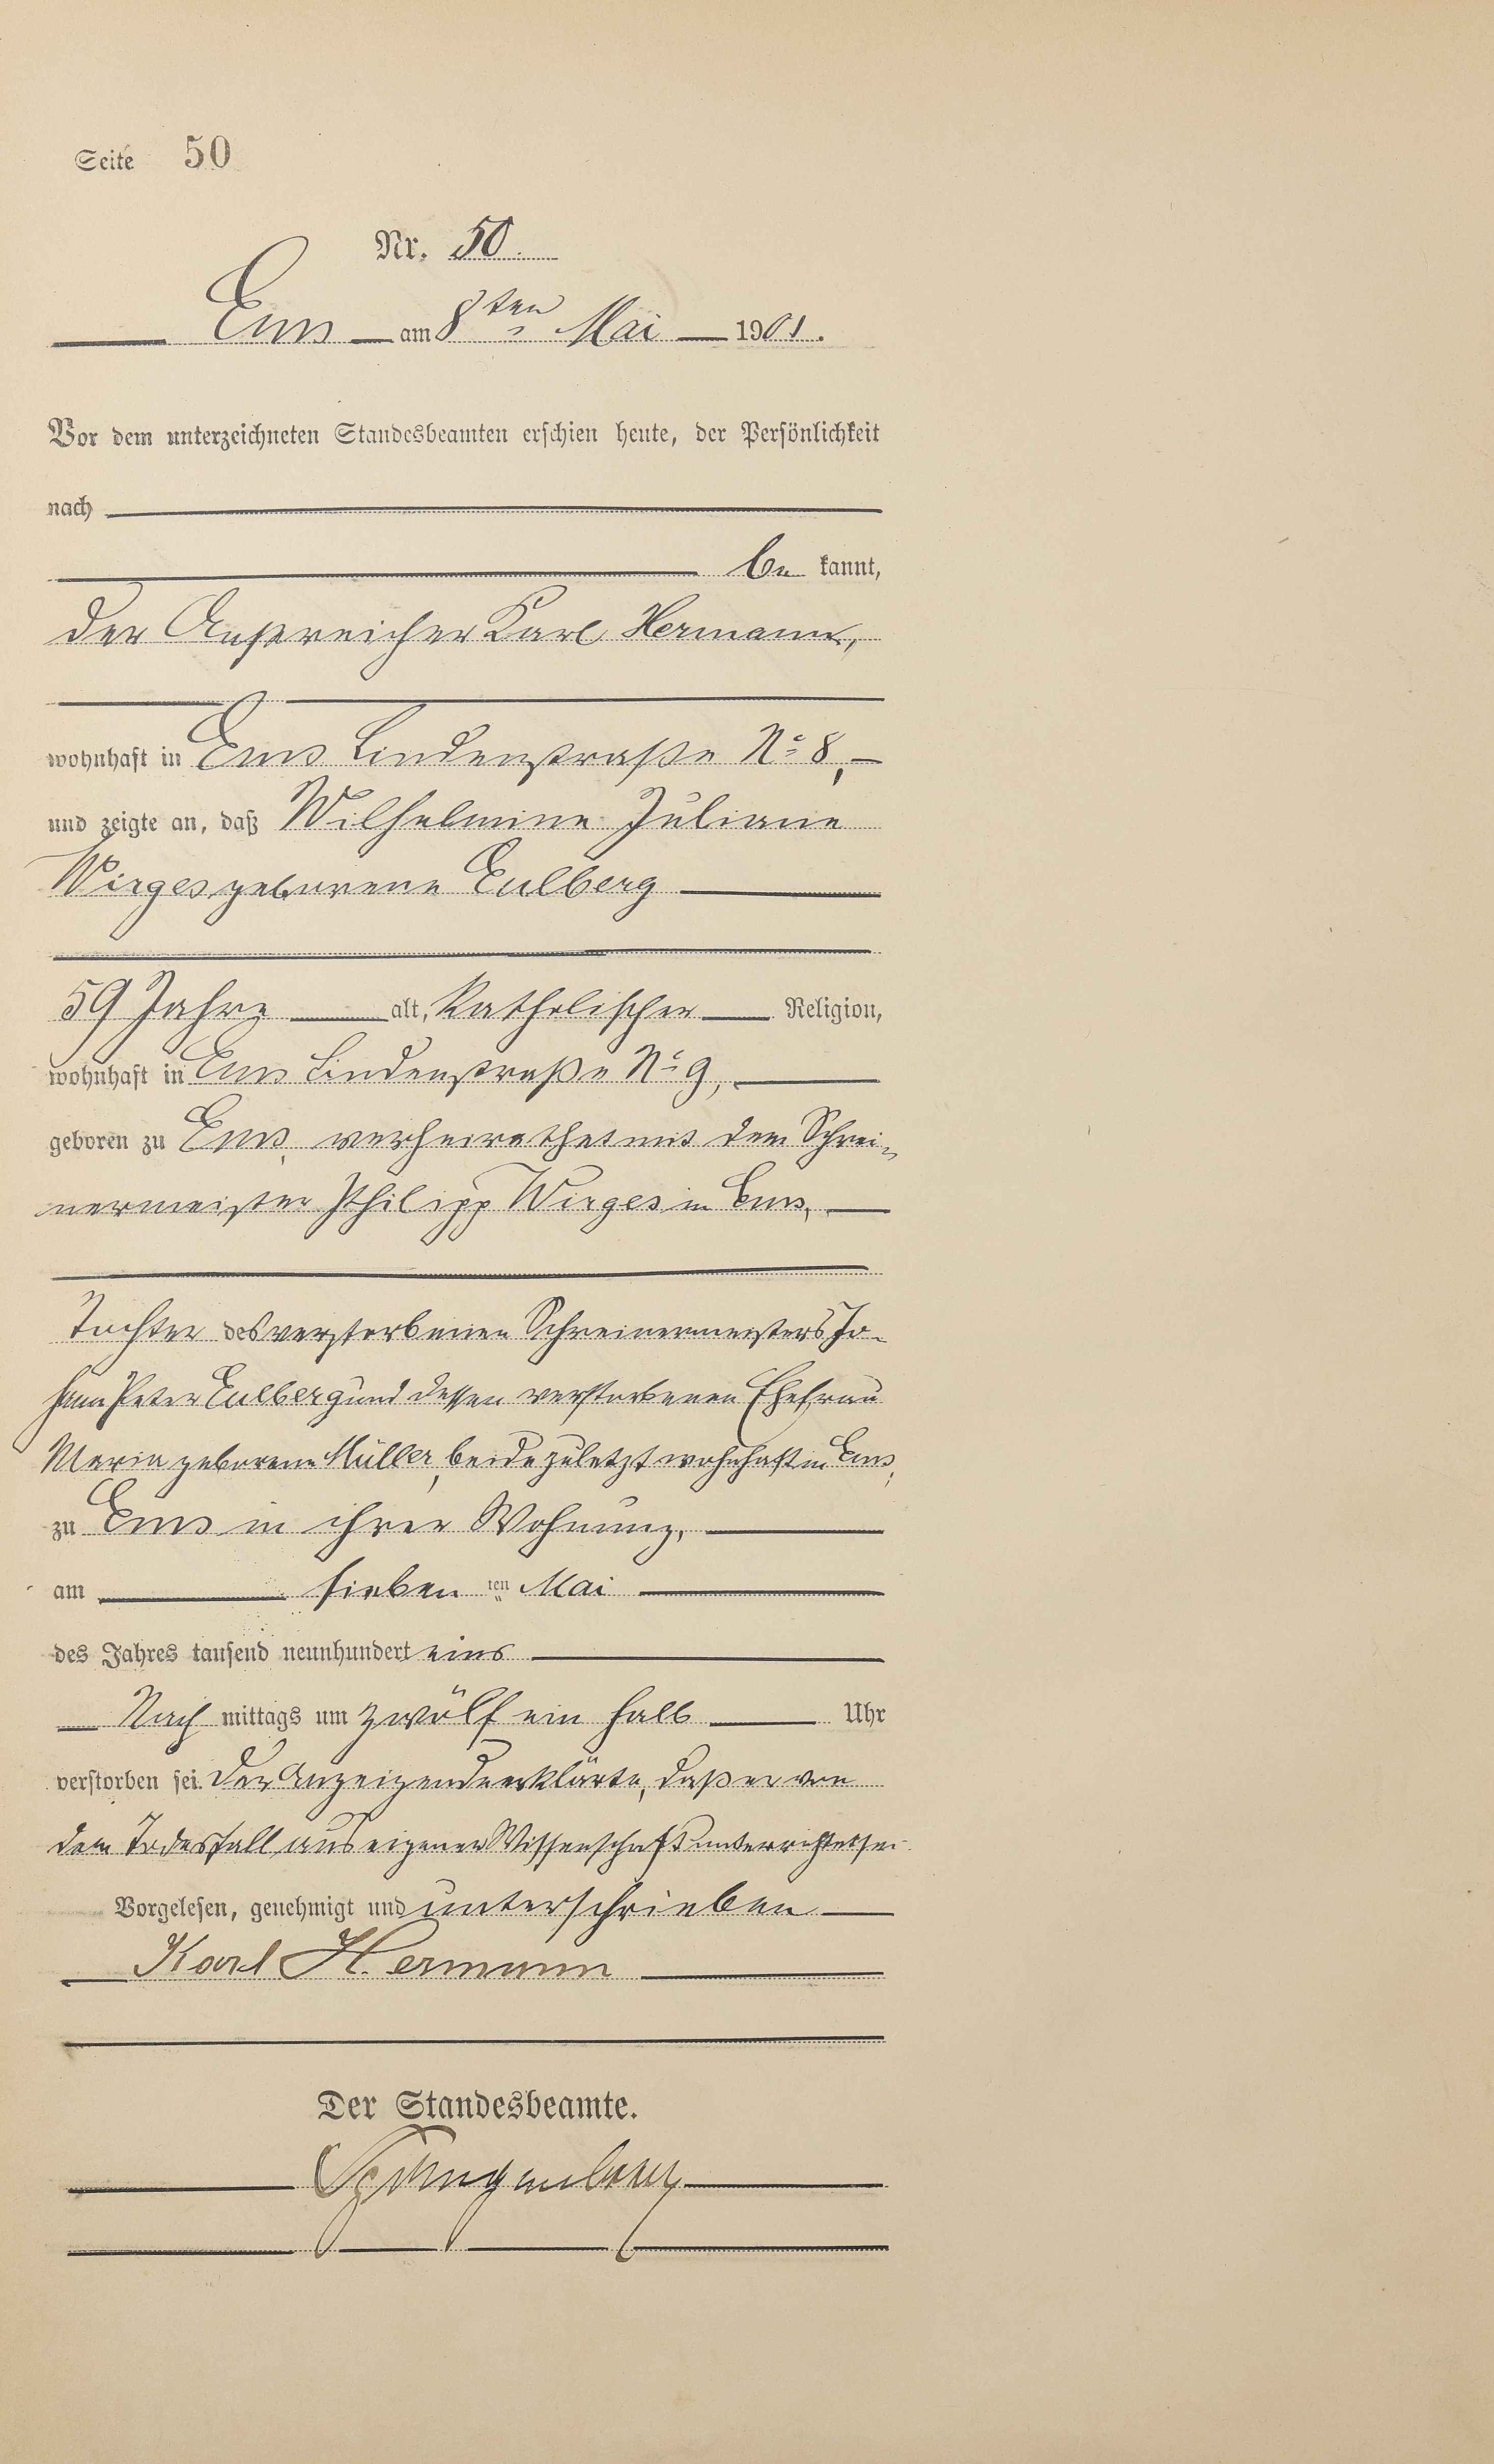 Seite 50
Nr. 50.
Ems am 8ten Mai 1901.
Vor dem unterzeichneten Standesbeamten erschien heute, der Persönlichkeit
nach
be kannt,
der Anstreicher Karl Hermann,
wohnhaft in Ems Lindenstraße No 8,
und zeigte an, daß Wilhelmine Juliane
Wirges geborene Eulberg
59 Jahre alt, katholischer Religion,
wohnhaft in Ems Lindenstraße No 9,
geboren zu Ems, verheirathet mit dem Schrei-
nermeister Philipp Wirges in Ems,
Tochter des verstorbenen Schreinermeisters Jo-
hann Peter Eulberg und dessen verstorbenen Ehefrau
Maria geborene Müller, beide zuletzt wohnhaft in Ems,
zu Ems in ihrer Wohnung,
am sieben ten Mai
des Jahres tausend neunhundert eins
Nach mittags um zwölf ein halb Uhr
verstorben sei. Der Anzeigende erklärte, daß er von
dem Todesfall aus eigener Wissenschaft unterrichtet sei.
Vorgelesen, genehmigt und unterschrieben
Karl Hermann
Der Standesbeamte.